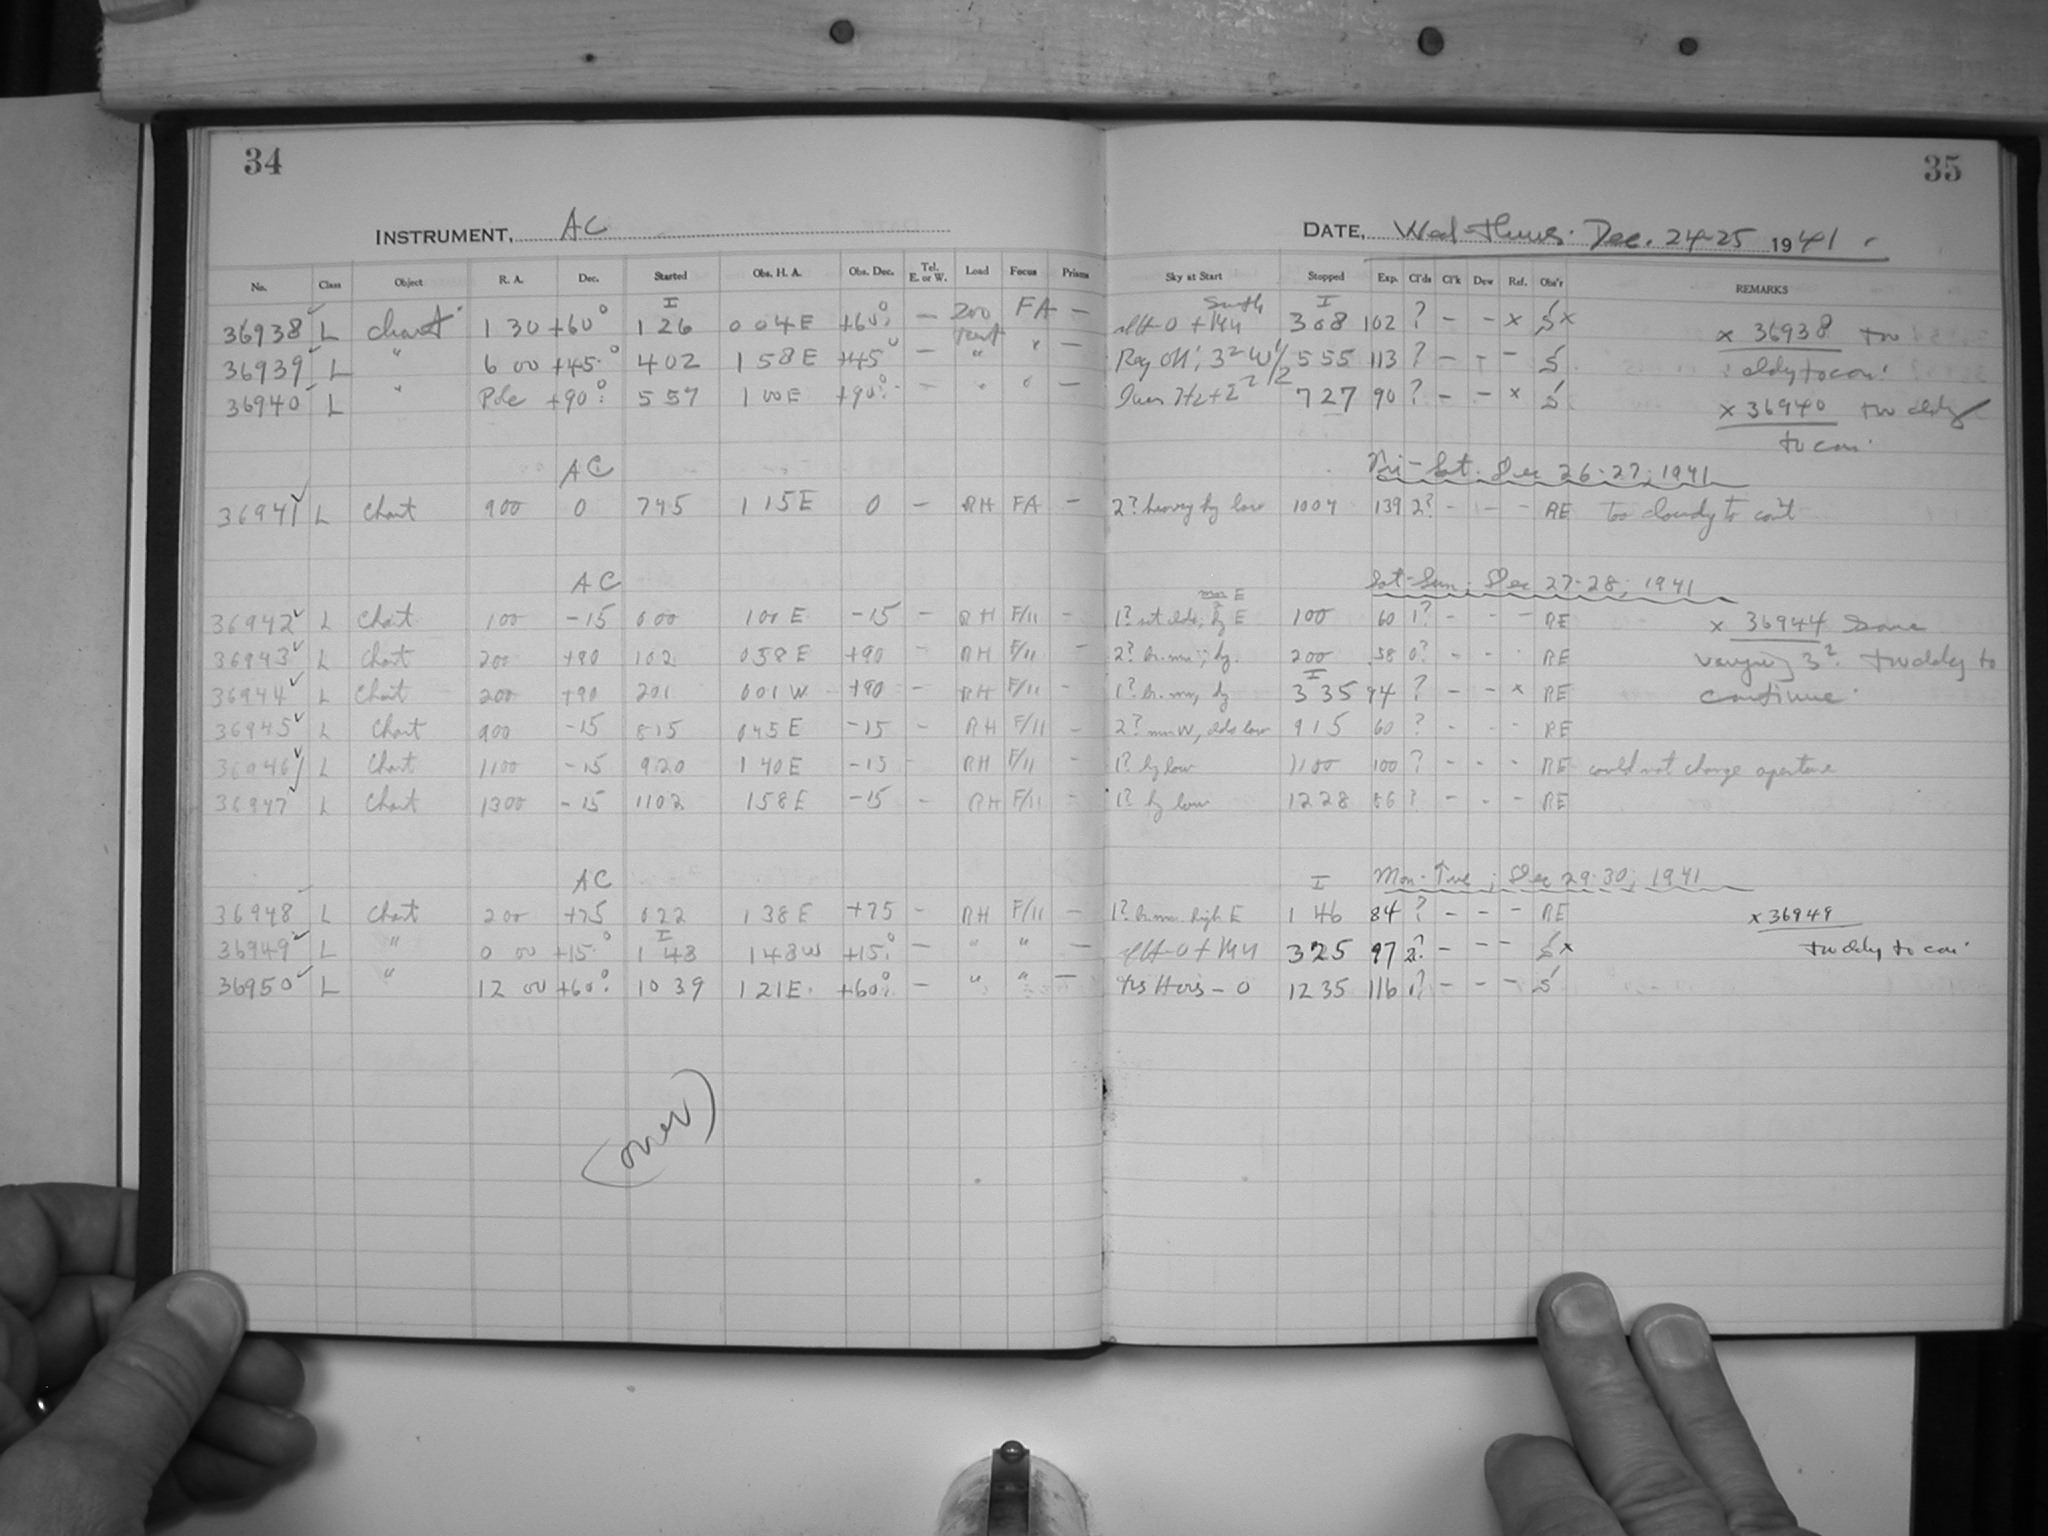 34
35
INSTRUMENT, AC
DATE, Wed-Thurs. Dec. 24-25 1941.
No. Class Object R. A. Dec. Started Obs. H. A. Obs. Dec. Tel. E. or W. Load Focus Prisms Sky at Start Stopped Exp. Cl'ds Cl'k Dew Ref. Obs'r REMARKS
36938 L chart 1 30 +60° I 1 26 0 04 E +60° — 200 FA — South 308 I 102 ? – – x S x x 36938 too
36939 L " 6 00 +45° 4 02 1 58 E +45° — " " — 5 55 113 ? – – – S cldy to con.
36940 L " Pole +90° 5 57 1 00 E +90° — " " — 7 27 90 ? – – x S x 36940 too cldy
to con.
AC Fri-Sat. Dec 26-27, 1941
36941 L Chart 900 0 745 1 15 E 0 – RH FA – 2? heavy hy low 1004 139 2? – – – RE Too cloudy to con't
AC Sat-Sun; Dec 27-28; 1941
36942 L Chart 100 -15 000 100 E -15 – RH F/11 – 1? E 100 60 1? – – – RE x 36944 Some
36943 L Chart 200 +90 102 058 E +90 – RH F/11 – 2? hy. 200 58 0? – – RE varying 3². too cldy to
36944 L Chart 200 +90 201 001 W +90 – RH F/11 – 1? hy I 3 35 94 ? – – x RE continue.
36945 L Chart 900 -15 815 045 E -15 – RH F/11 – 2? W, clds low 915 60 ? – – – RE
36946 L Chart 1100 -15 920 1 40 E -15 – RH F/11 – 1? hy low 1100 100 ? – – – RE could not change aperture
36947 L Chart 1300 -15 1102 158 E -15 – RH F/11 – 1? hy low 1228 86 ? – – – RE
AC I Mon-Tue; Dec 29-30; 1941
36948 L Chart 200 +75 022 1 38 E +75 – RH F/11 – 1? high E 1 46 84 ? – – – RE x 36949
36949 L " 0 00 +15° I 1 48 1 48 W +15° — " " — 3 25 97 2? – – – S x too cldy to con.
36950 L " 12 00 +60° 10 39 1 21 E +60° — " " — – 0 12 35 116 1? – – – S
(over)